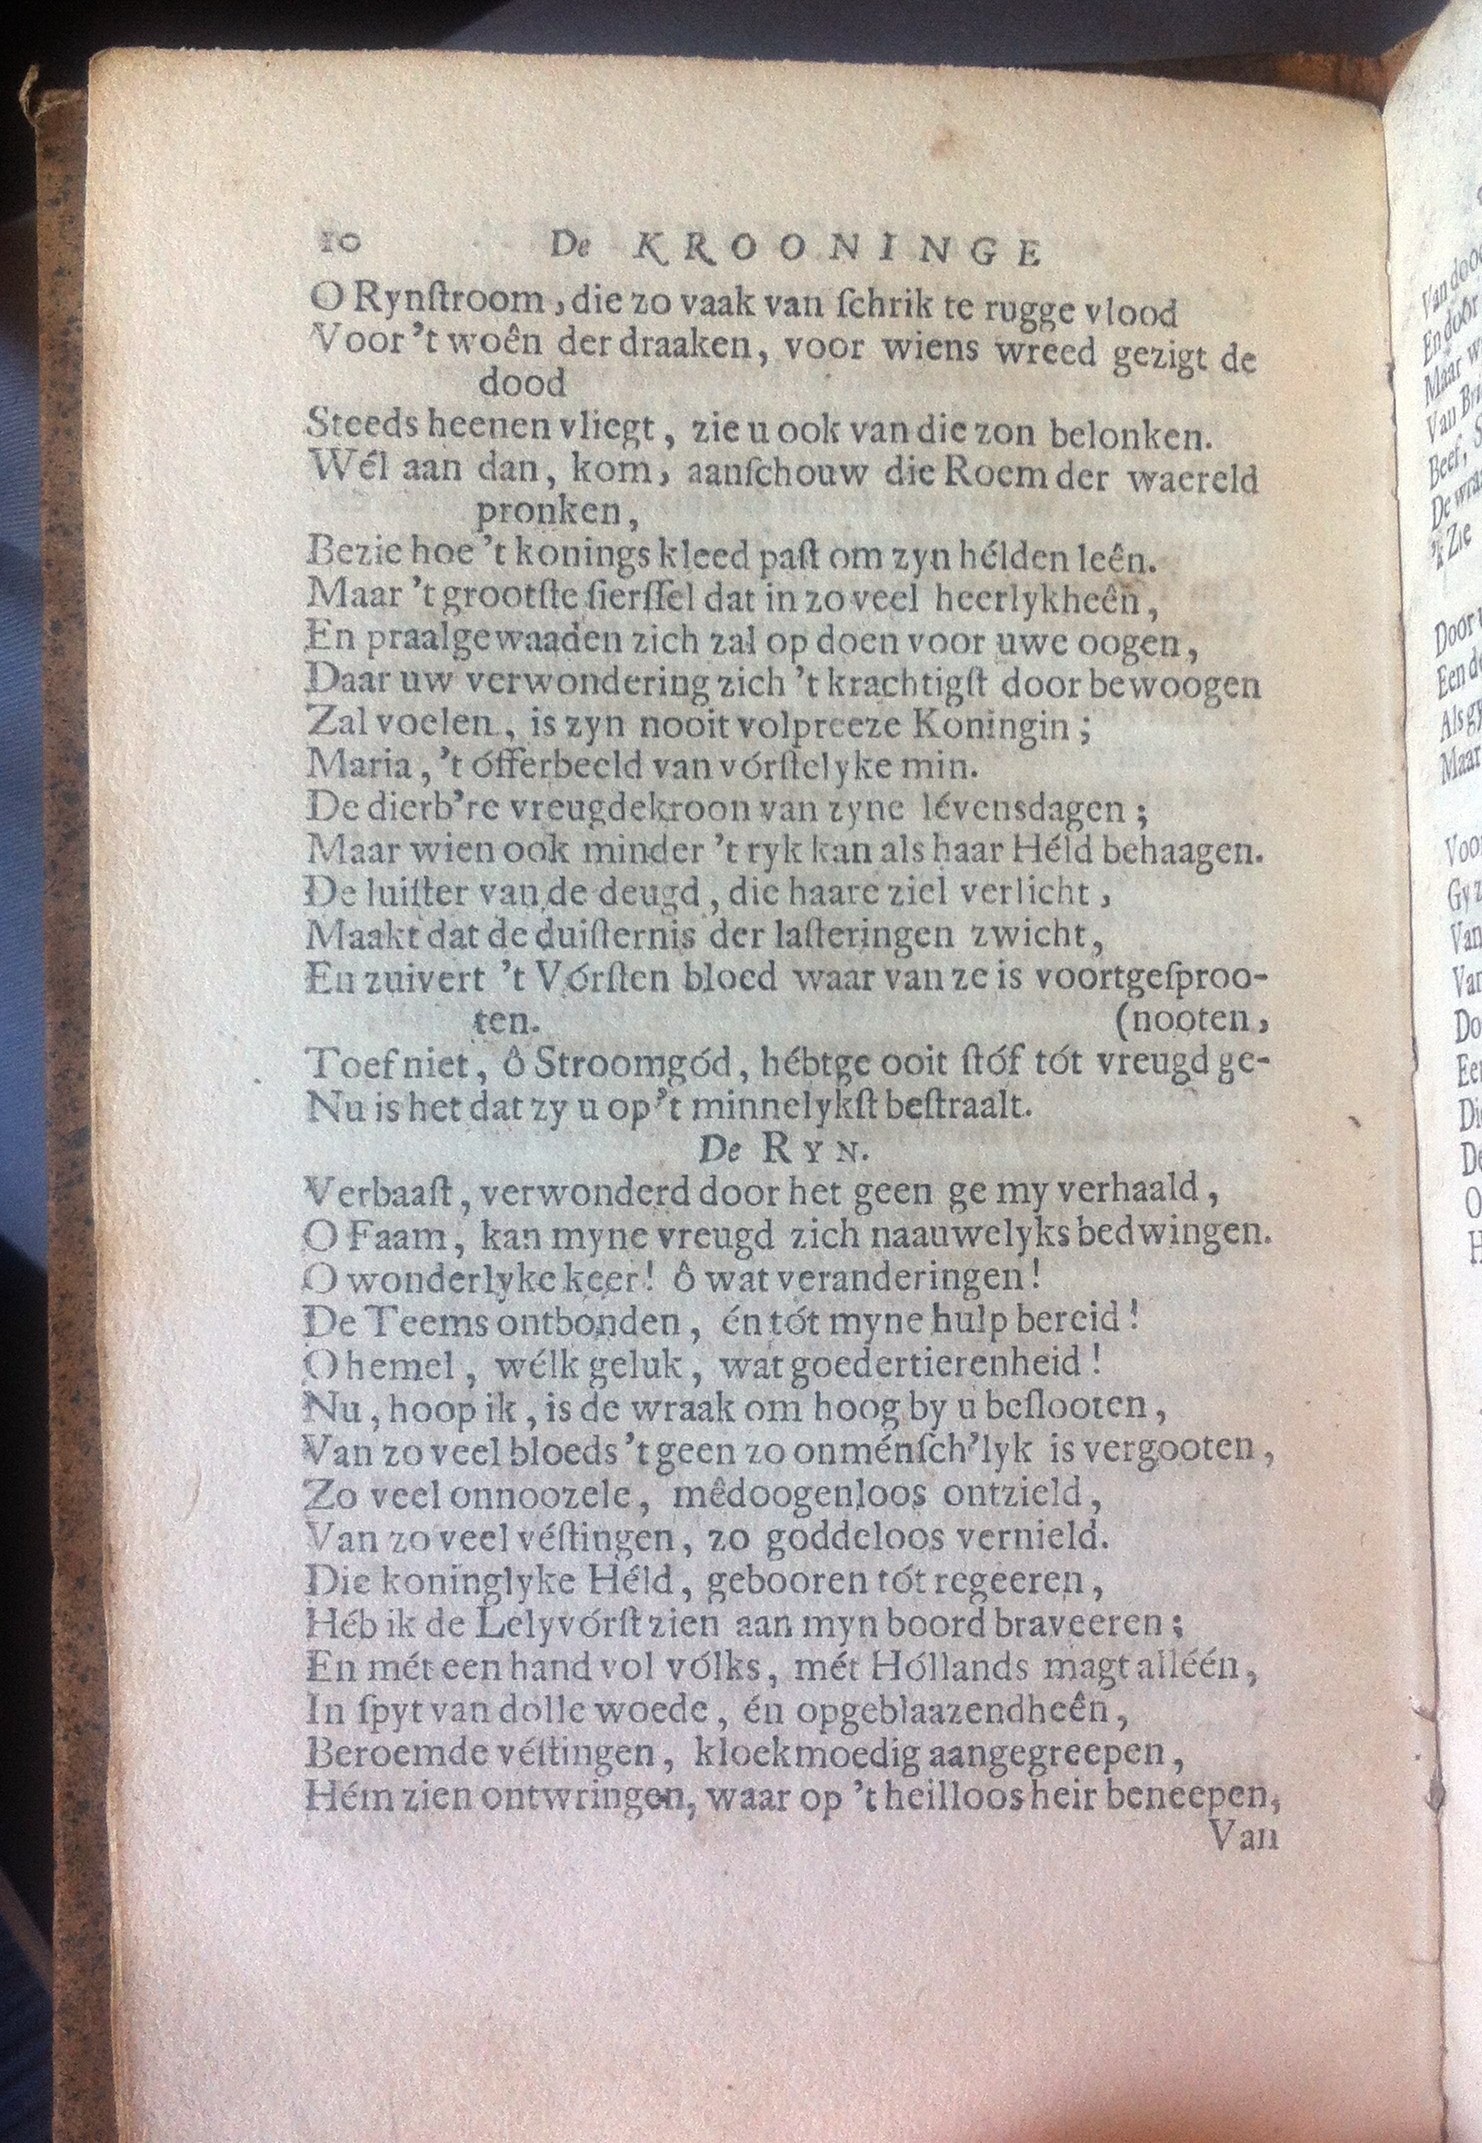 10 De KROONINGE
O Rynſtroom, die zo vaak van ſchrik te rugge vlood
Voor 't woên der draaken, voor wiens wreed gezigt de
dood
Steeds heenen vliegt, zie u ook van die zon belonken.
Wél aan dan, kom, aanſchouw die Roem der waereld
pronken,
Bezie hoe 't konings kleed paſt om zyn hélden leên.
Maar 't grootſte ſierſſel dat in zo veel heerlykheên,
En praalgewaaden zich zal op doen voor uwe oogen,
Daar uw verwondering zich 't krachtigſt door bewoogen
Zal voelen, is zyn nooit volpreeze Koningin;
Maria, 't ófferbeeld van vórſtelyke min.
De dierb're vreugdekroon van zyne lévensdagen;
Maar wien ook minder 't ryk kan als haar Héld behaagen.
De luiſter van de deugd, die haare ziel verlicht,
Maakt dat de duiſternis der laſteringen zwicht,
En zuivert 't Vórſten bloed waar van ze is voortgeſproo-
ten. (nooten,
Toef niet, ô Stroomgód, hébtge ooit ſtóf tót vreugd ge-
Nu is het dat zy u op 't minnelykſt beſtraalt.
De RYN.
Verbaaſt, verwonderd door het geen ge my verhaald,
O Faam, kan myne vreugd zich naauwelyks bedwingen.
O wonderlyke keer! ô wat veranderingen!
De Teems ontbonden, én tót myne hulp bereid!
O hemel, wélk geluk, wat goedertierenheid!
Nu, hoop ik, is de wraak om hoog by u beſlooten,
Van zo veel bloeds 't geen zo onménſch'lyk is vergooten,
Zo veel onnoozele, mêdoogenloos ontzield,
Van zo veel véſtingen, zo goddeloos vernield.
Die koninglyke Héld, gebooren tót regeeren,
Héb ik de Lelyvórſt zien aan myn boord braveeren;
En mét een hand vol vólks, mét Hóllands magt alléén,
In ſpyt van dolle woede, én opgeblaazendheên,
Beroemde véſtingen, kloekmoedig aangegreepen,
Hém zien ontwringen, waar op 't heilloos heir beneepen,
Van